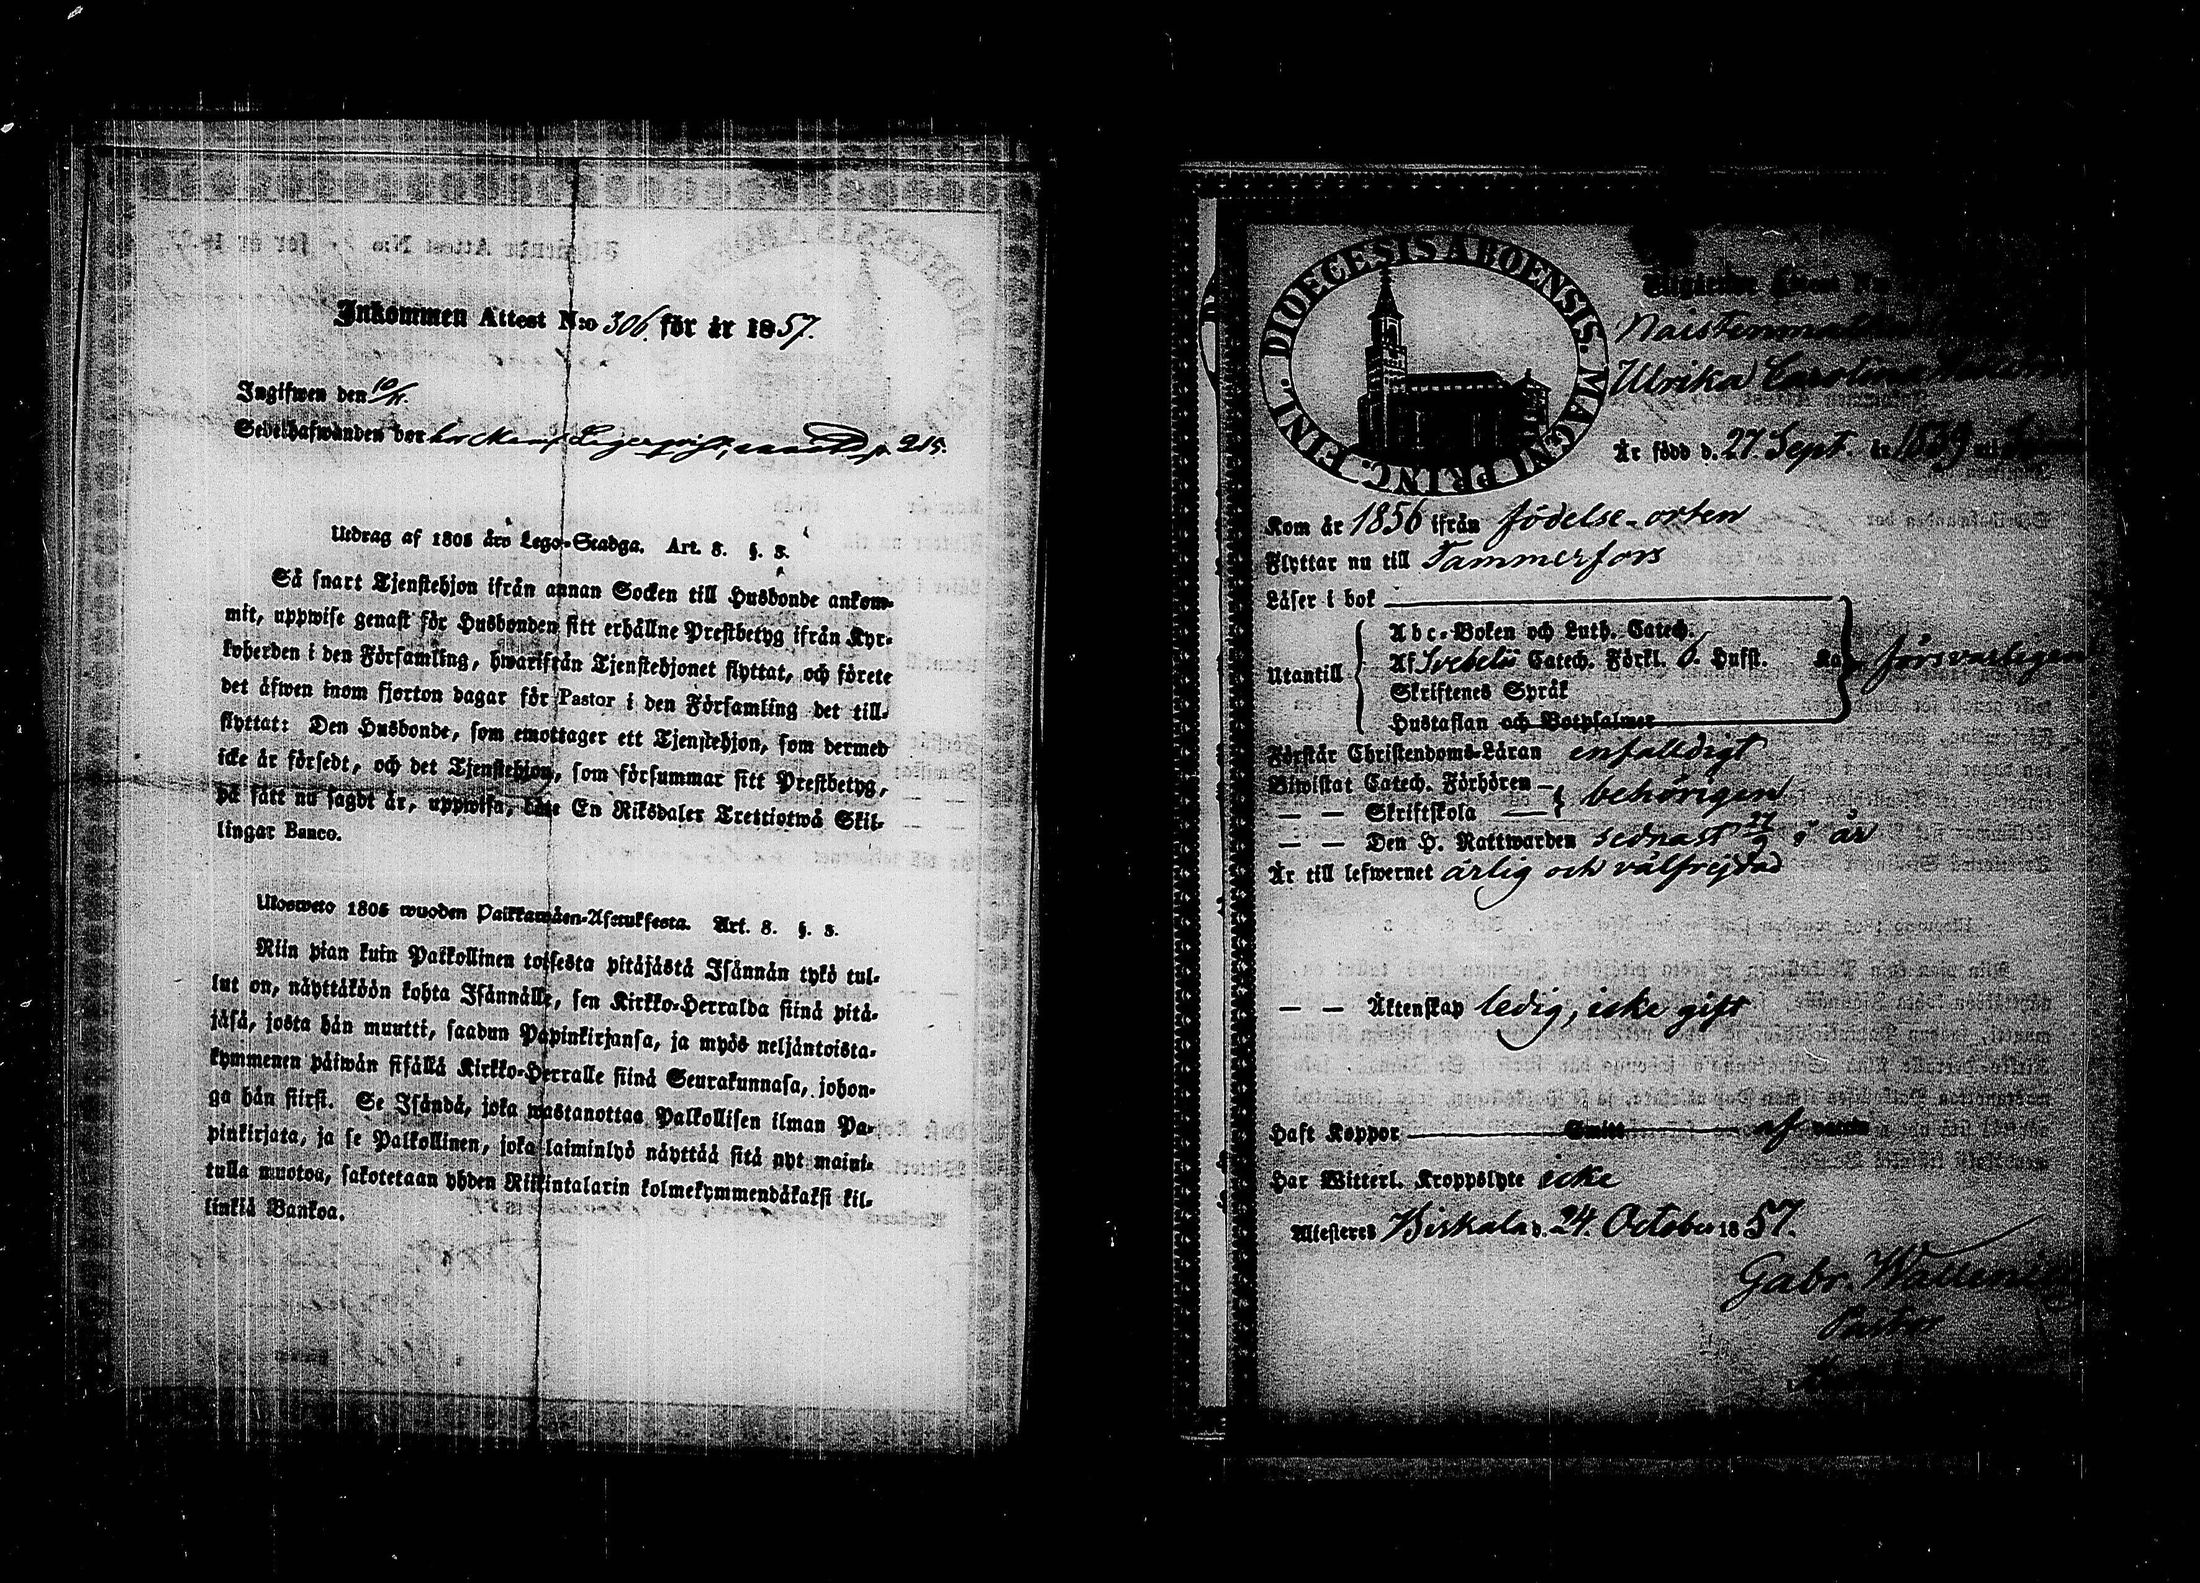 Inkommen Attest N:o 306. för år 1857.
Ingifwen den 10/11.
Sedelhafwanden bor hos Mamf. Lagerqvist, p. 215.
Utdrag af 1805 års Lego-Stadga. Art. 8. §. 3.
Så snart Tjenstehjon ifrån annan Socken till Husbonde ankom-
mit, uppwise genast för Husbonden sitt erhållne Prestbetyg ifrån Kyr-
koherden i den Församling, hwarifrån Tjenstehjonet flyttat, och förete
det äfwen inom fjorton dagar för Pastor i den Församling det till-
flyttat: Den Husbonde, som emottager ett Tjenstehjon, som dermed
icke är försedt, och det Tjenstehjon, som försummar sitt Prestbetyg,
på sätt nu sagdt är, uppwisa, böte En Riksdaler Trettiotwå Skil-
lingar Banco.
Ulosweto 1805 wuoden Palkkawäen-Asetuksesta. Art. 8. §. 3.
Niin pian kuin Palkollinen toisesta pitäjästä Isännän tykö tul-
lut on, näyttäköön kohta Isännälle, sen Kirkko-Herralda siinä pitä-
jäsä, josta hän muutti, saadun Papinkirjansa, ja myös neljäntoista-
kymmenen päiwän sisällä Kirkko-Herralle siinä Seurakunnasa, johon-
ga hän siirst. Se Isändä, joka wastanottaa Palkollisen ilman Pa-
pinkirjata, ja se Palkollinen, joka laiminlyö näyttää sitä nyt maini-
tulla muotoa, sakotetaan yhden Riikintalarin kolmekymmendäkaksi kil-
linkiä Bankoa.
DIOECESIS ABOENSIS. MAGNI PRINC. FINL.
Ulrika Carolina
Är född d. 27 Sept. år 1839
Kom år 1856 ifrån födelse-orten
Flyttar nu till Tammerfors
Läser i bok
Abc-Boken och Luth. Catech.
Utantill Af Svebelii Catech. Förkl. 6. Hufst. försvarligen
Skriftenes Språk
Hustaflan och Botpsalmer
Förstår Christendoms-Läran enfalldigt
Biwistat Catech. Förhören
— — Skriftskola behörigen
— — Den H. Nattwarden sednast 27/9 i år
Är till lefwernet ärlig och välfrejdad
— — Äktenskap ledig, icke gift
Haft Koppor Smitt af
Har Witterl. Kroppslyte icke
Attesteres Birkala d. 24. October 1857.
Gabr.
Pastor